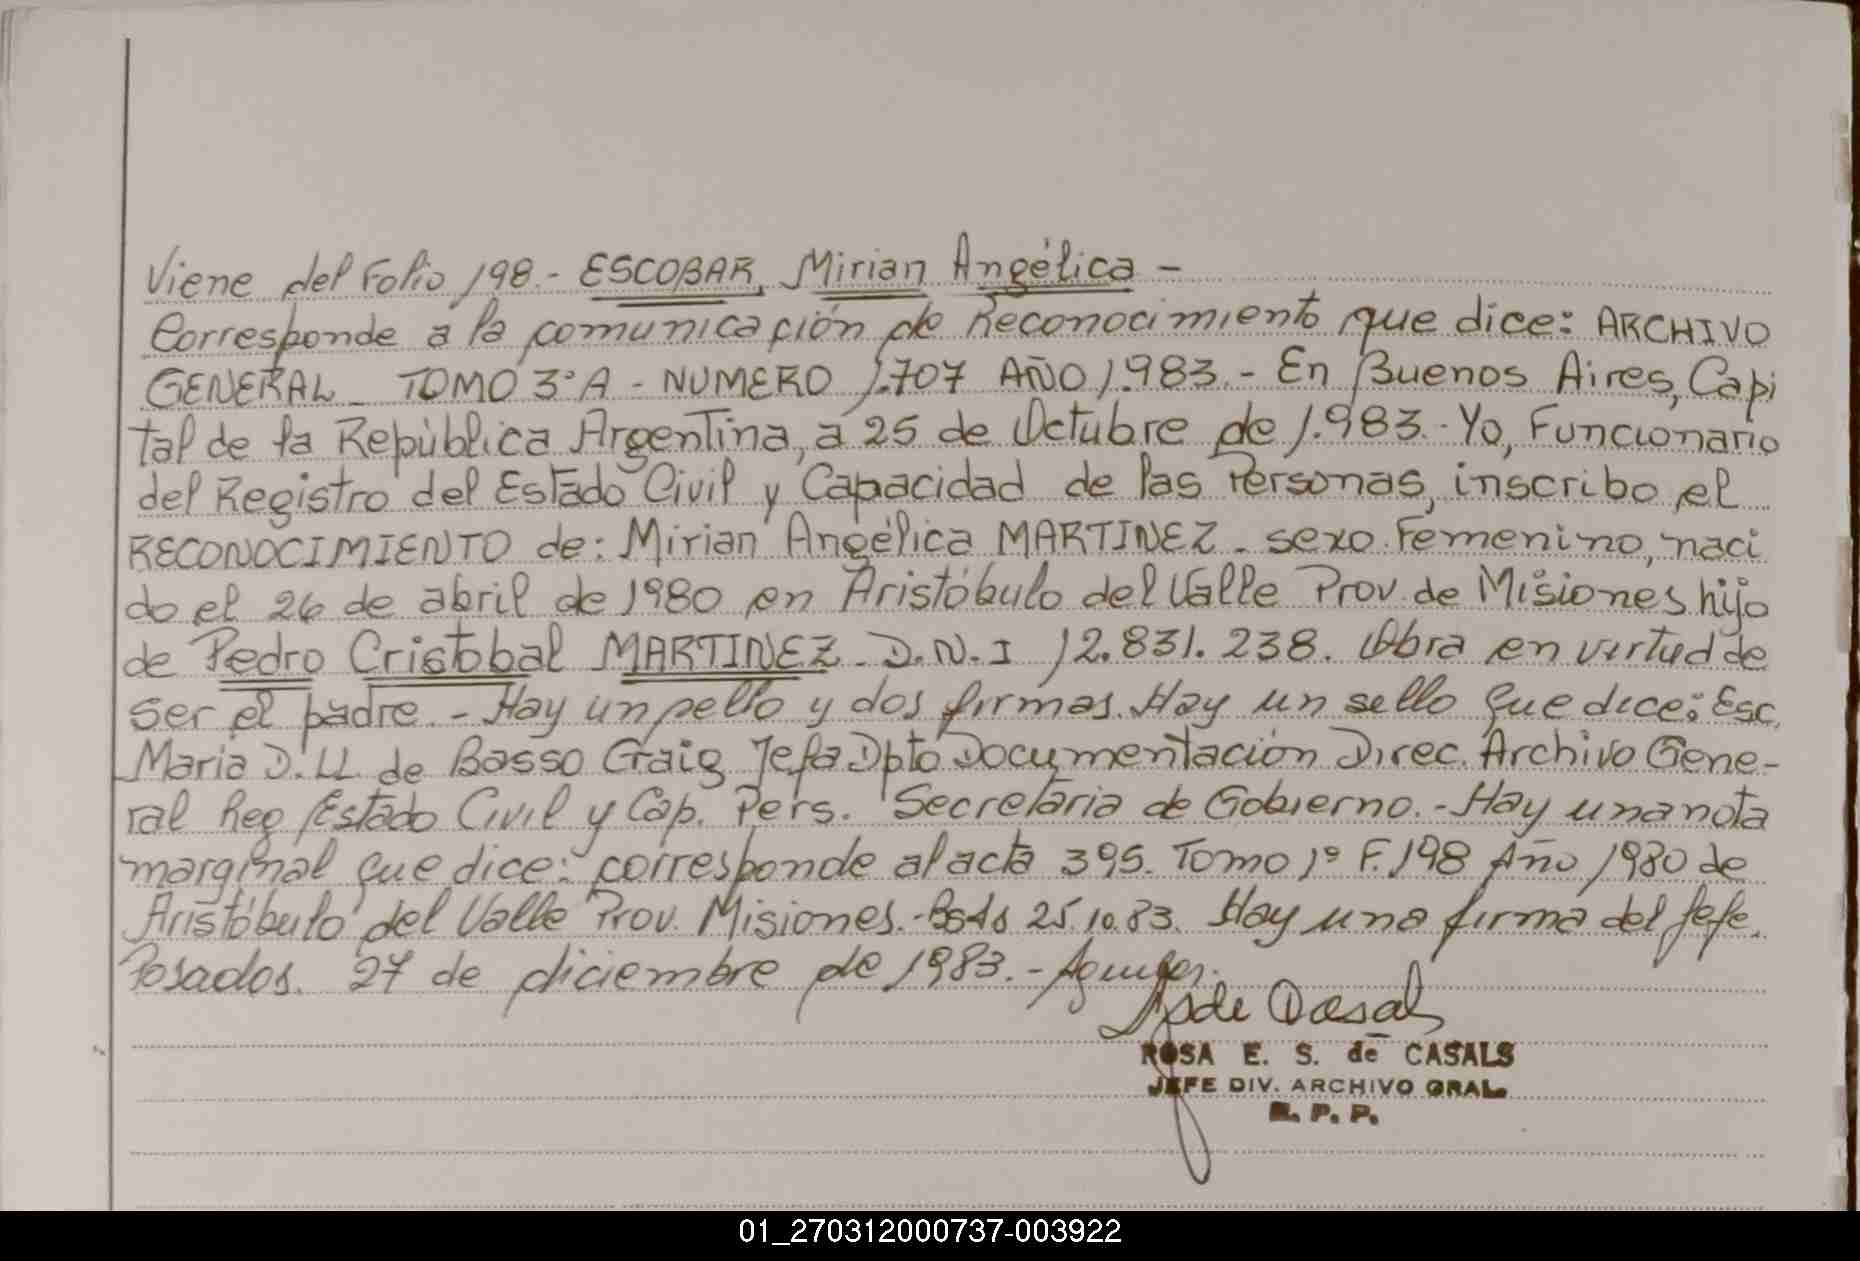 Viene del Folio 198.- ESCOBAR, Mirian Angélica -
Corresponde a la comunicación de Reconocimiento que dice: ARCHIVO
GENERAL - TOMO 3º A - NUMERO 1.707 AÑO 1.983.- En Buenos Aires, Capi
tal de la República Argentina, a 25 de Octubre de 1.983.- Yo, Funcionario
del Registro del Estado Civil y Capacidad de las Personas, inscribo el
RECONOCIMIENTO de: Mirian Angélica MARTINEZ - sexo Femenino, naci
do el 26 de abril de 1980 en Aristóbulo del Valle Prov. de Misiones hijo
de Pedro Cristobal MARTINEZ - D.N.I 12.831.238. Obra en virtud de
ser el padre.- Hay un sello y dos firmas. Hay un sello que dice: Esc.
Maria D. LL. de Basso Craig Jefa Dpto Documentación Direc. Archivo Gene-
ral Reg Estado Civil y Cap. Pers. Secretaria de Gobierno.- Hay una nota
marginal que dice: corresponde al acta 395. Tomo 1º F. 198 Año 1980 de
Aristóbulo del Valle Prov. Misiones.- BsAs 25.10.83. Hay una firma del Jefe.
Posadas. 27 de diciembre de 1983.-
ROSA E. S. de CASALS
JEFE DIV. ARCHIVO GRAL.
R. P. P.
01_270312000737-003922